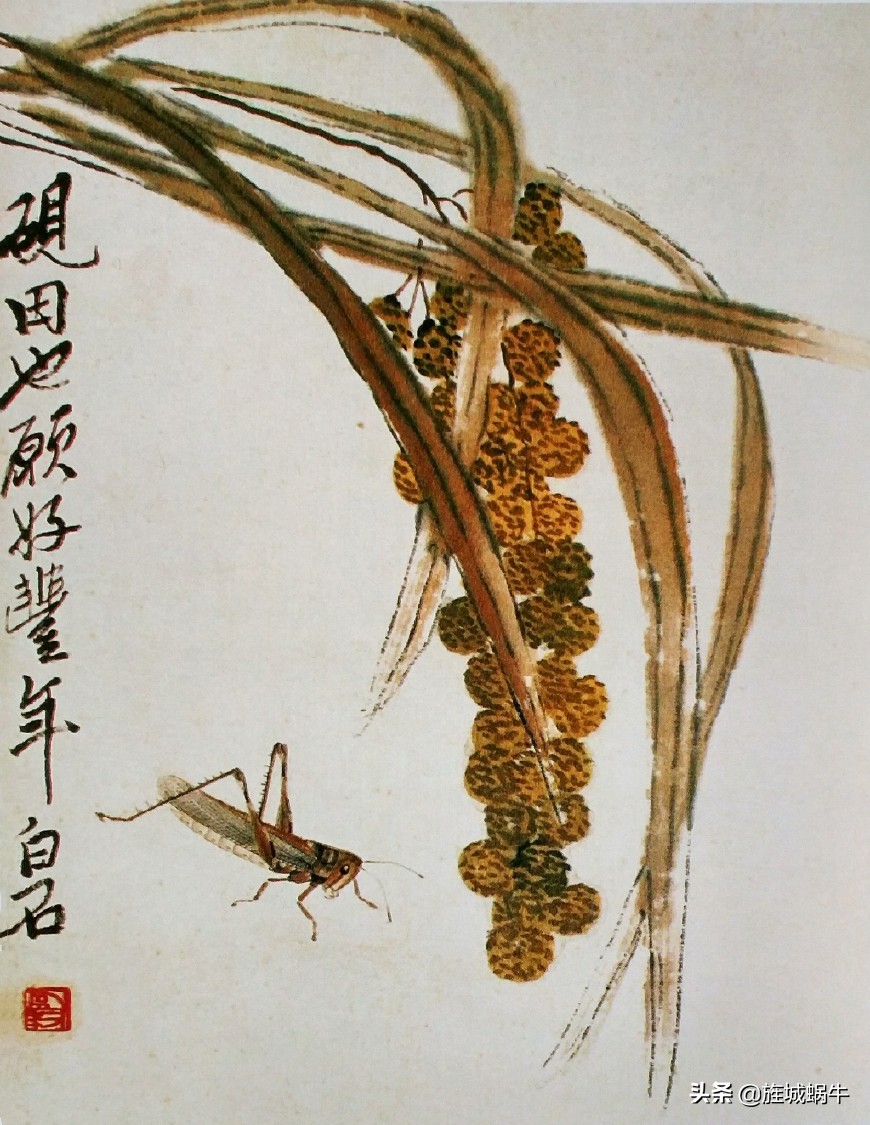 硯田也願好豐年 白石
头条 @旌城蜗牛